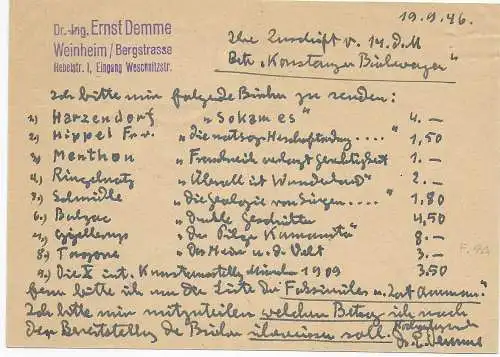 19.9.46.
Dr.-Ing. Ernst Demme
Weinheim / Bergstrasse
Nebelstr. 1, Eingang Weschnitzstr.
Ihre Zuschrift v. 14. d. M
Betr. „Konstanzer Bücherwagen"
Ich bitte mir folgende Bücher zu senden:
1.) Harzendorf „Sokames" 4.—
2.) Hippel Fr. v. „die natsoz. Herrschaftsordng ...." 1,50
3.) Menthon „Frankreich verlangt Gerechtigkeit 1.—
4.) Ringelnatz „Überall ist Wunderland" 2.—
5.) Schmidle „Die Geologie von Singen ...." 1.80
6.) Balzac „Dunkle Geschichte 4,50
7.) Gjellerup „Der Pilger Kamanita" 8.—
8.) „Das Meer u. d. Welt 3.—
9.) Die X int. Kunstausstellg München 1909 3.50
F. 9A
fern bitte ich um die Liste der Faksimiles u. Ammann."
Ich bitte mir mitzuteilen welchen Betrag ich nach
der Bereitstellg der Bücher überweisen soll. Hochachtungsvoll
Dr. E. Demme